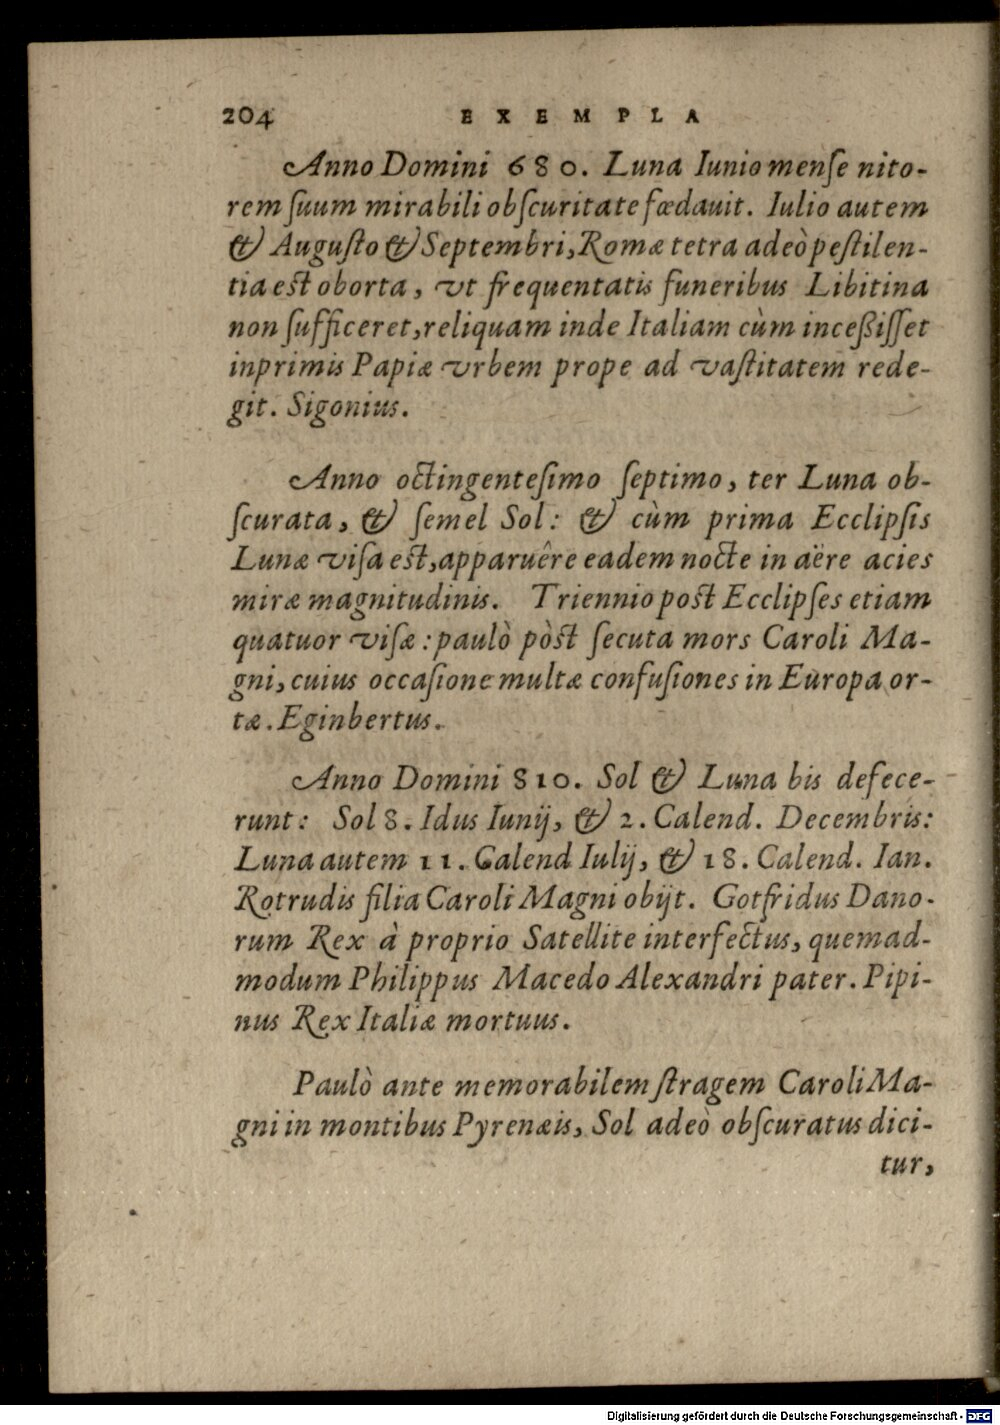 204 EXEMPLA
Anno Domini 680. Luna Iunio menſe nito-
rem ſuum mirabili obſcuritate fœdauit. Iulio autem
& Auguſto & Septembri, Romæ tetra adeò peſtilen-
tia eſt oborta, vt frequentatis funeribus Libitina
non ſufficeret, reliquam inde Italiam cùm inceßiſſet
inprimis Papiæ vrbem prope ad vaſtitatem rede-
git. Sigonius.
Anno octingenteſimo ſeptimo, ter Luna ob-
ſcurata, & ſemel Sol: & cùm prima Ecclipſis
Lunæ viſa eſt, apparuêre eadem nocte in aëre acies
miræ magnitudinis. Triennio poſt Ecclipſes etiam
quatuor viſæ: paulò pòſt ſecuta mors Caroli Ma-
gni, cuius occaſione multæ confuſiones in Europa or-
tæ. Eginbertus.
Anno Domini 810. Sol & Luna bis defece-
runt: Sol 8. Idus Iunij, & 2. Calend. Decembris:
Luna autem 11. Calend Iulij, & 18. Calend. Ian.
Rotrudis filia Caroli Magni obijt. Gotfridus Dano-
rum Rex à proprio Satellite interfectus, quemad-
modum Philippus Macedo Alexandri pater. Pipi-
nus Rex Italiæ mortuus.
Paulò ante memorabilem ſtragem Caroli Ma-
gni in montibus Pyrenæis, Sol adeò obſcuratus dici-
tur,
Digitalisierung gefördert durch die Deutsche Forschungsgemeinschaft - DFG